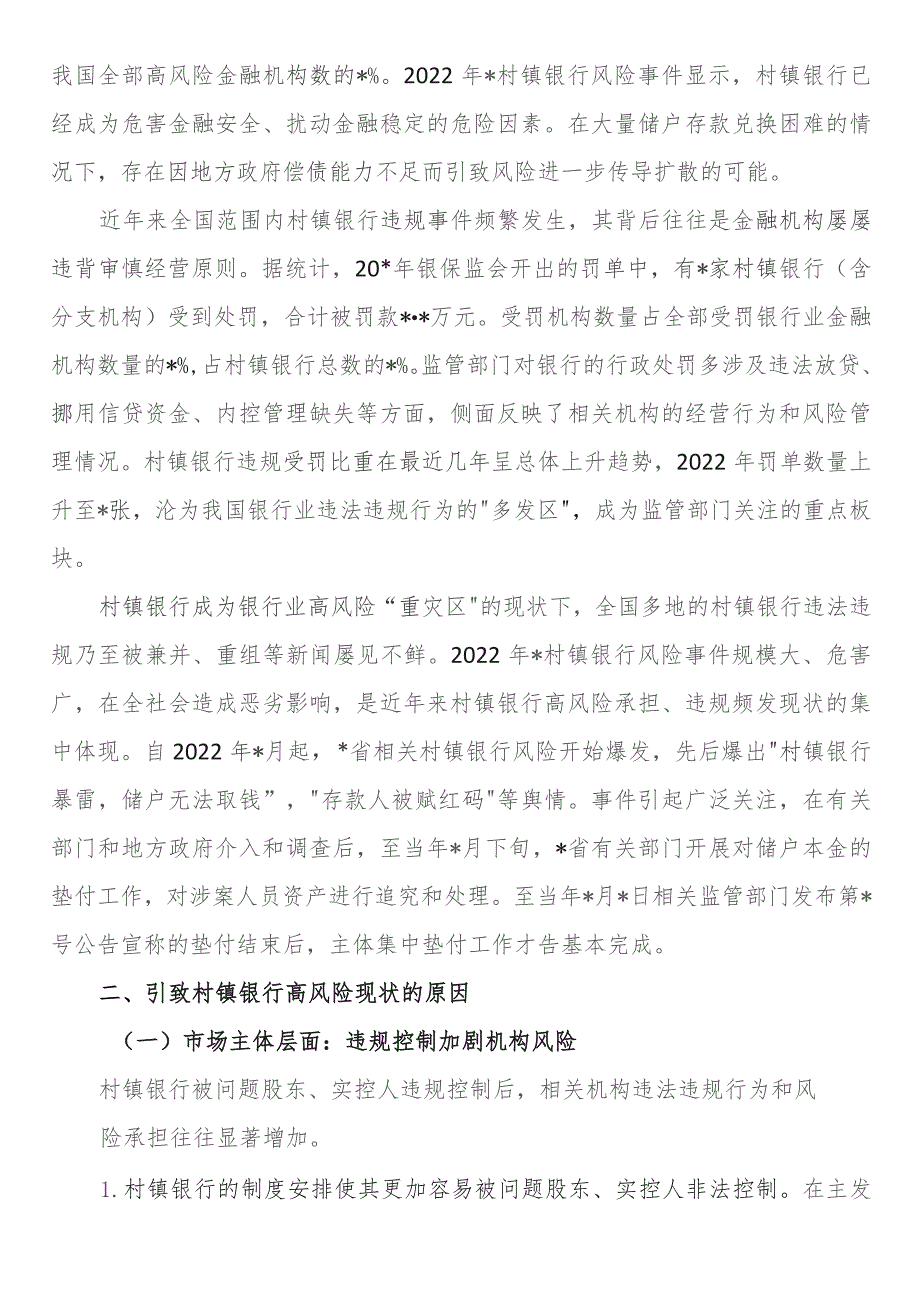 我国全部高风险金融机构数的*%。2022 年*村镇银行风险事件显示，村镇银行已
经成为危害金融安全、扰动金融稳定的危险因素。在大量储户存款兑换困难的情
况下，存在因地方政府偿债能力不足而引致风险进一步传导扩散的可能。
近年来全国范围内村镇银行违规事件频繁发生，其背后往往是金融机构屡屡
违背审慎经营原则。据统计，20*年银保监会开出的罚单中，有*家村镇银行（含
分支机构）受到处罚，合计被罚款*·*万元。受罚机构数量占全部受罚银行业金融
机构数量的*%,占村镇银行总数的*%。监管部门对银行的行政处罚多涉及违法放贷、
挪用信贷资金、内控管理缺失等方面，侧面反映了相关机构的经营行为和风险管
理情况。村镇银行违规受罚比重在最近几年呈总体上升趋势，2022 年罚单数量上
升至*张，沦为我国银行业违法违规行为的"多发区"，成为监管部门关注的重点板
块。
村镇银行成为银行业高风险“重灾区"的现状下，全国多地的村镇银行违法违
规乃至被兼并、重组等新闻屡见不鲜。2022 年*村镇银行风险事件规模大、危害
广，在全社会造成恶劣影响，是近年来村镇银行高风险承担、违规频发现状的集
中体现。自 2022 年*月起，*省相关村镇银行风险开始爆发，先后爆出"村镇银行
暴雷，储户无法取钱”，"存款人被赋红码"等舆情。事件引起广泛关注，在有关
部门和地方政府介入和调查后，至当年*月下旬，*省有关部门开展对储户本金的
垫付工作，对涉案人员资产进行追究和处理。至当年*月*日相关监管部门发布第*
号公告宣称的垫付结束后，主体集中垫付工作才告基本完成。
二、引致村镇银行高风险现状的原因
（一）市场主体层面：违规控制加剧机构风险
村镇银行被问题股东、实控人违规控制后，相关机构违法违规行为和风
险承担往往显著增加。
1.村镇银行的制度安排使其更加容易被问题股东、实控人非法控制。在主发